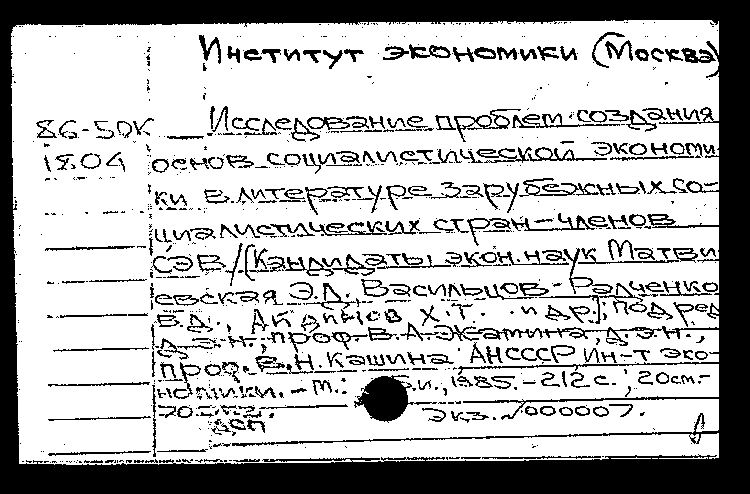 Институт экономики (Москва)
86-5DK Исследование проблем создания
18.04 основ социалистической экономи-
ки в литературе зарубежных со-
циалистических стран-членов
СЭВ/[Кандидаты экон. наук Матви-
евская Э.Д., Васильцов-Радченко
В.Д., Х.Т. и др.]; под ред.
д.э.н., проф. В.А. Жамина, д.э.н.,
проф. В.Н. Кашина АНСССР Ин-т эко-
номики. - М.: Б.и., 1985. - 212 с.; 20см.-
Экз. №000007.
ДСП